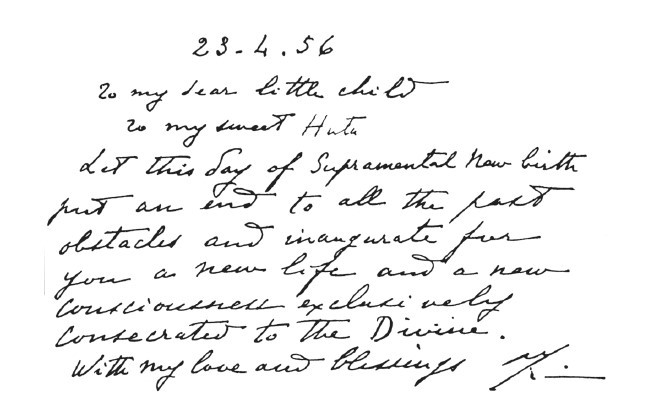 23-4.56
To my dear little child
To my sweet Huta
Let this day of Supramental New birth
put an end to all the past
obstacles and inaugurate for
you a new life and a new
consciousness exclusively
consecrated to the Divine.
With my love and blessings